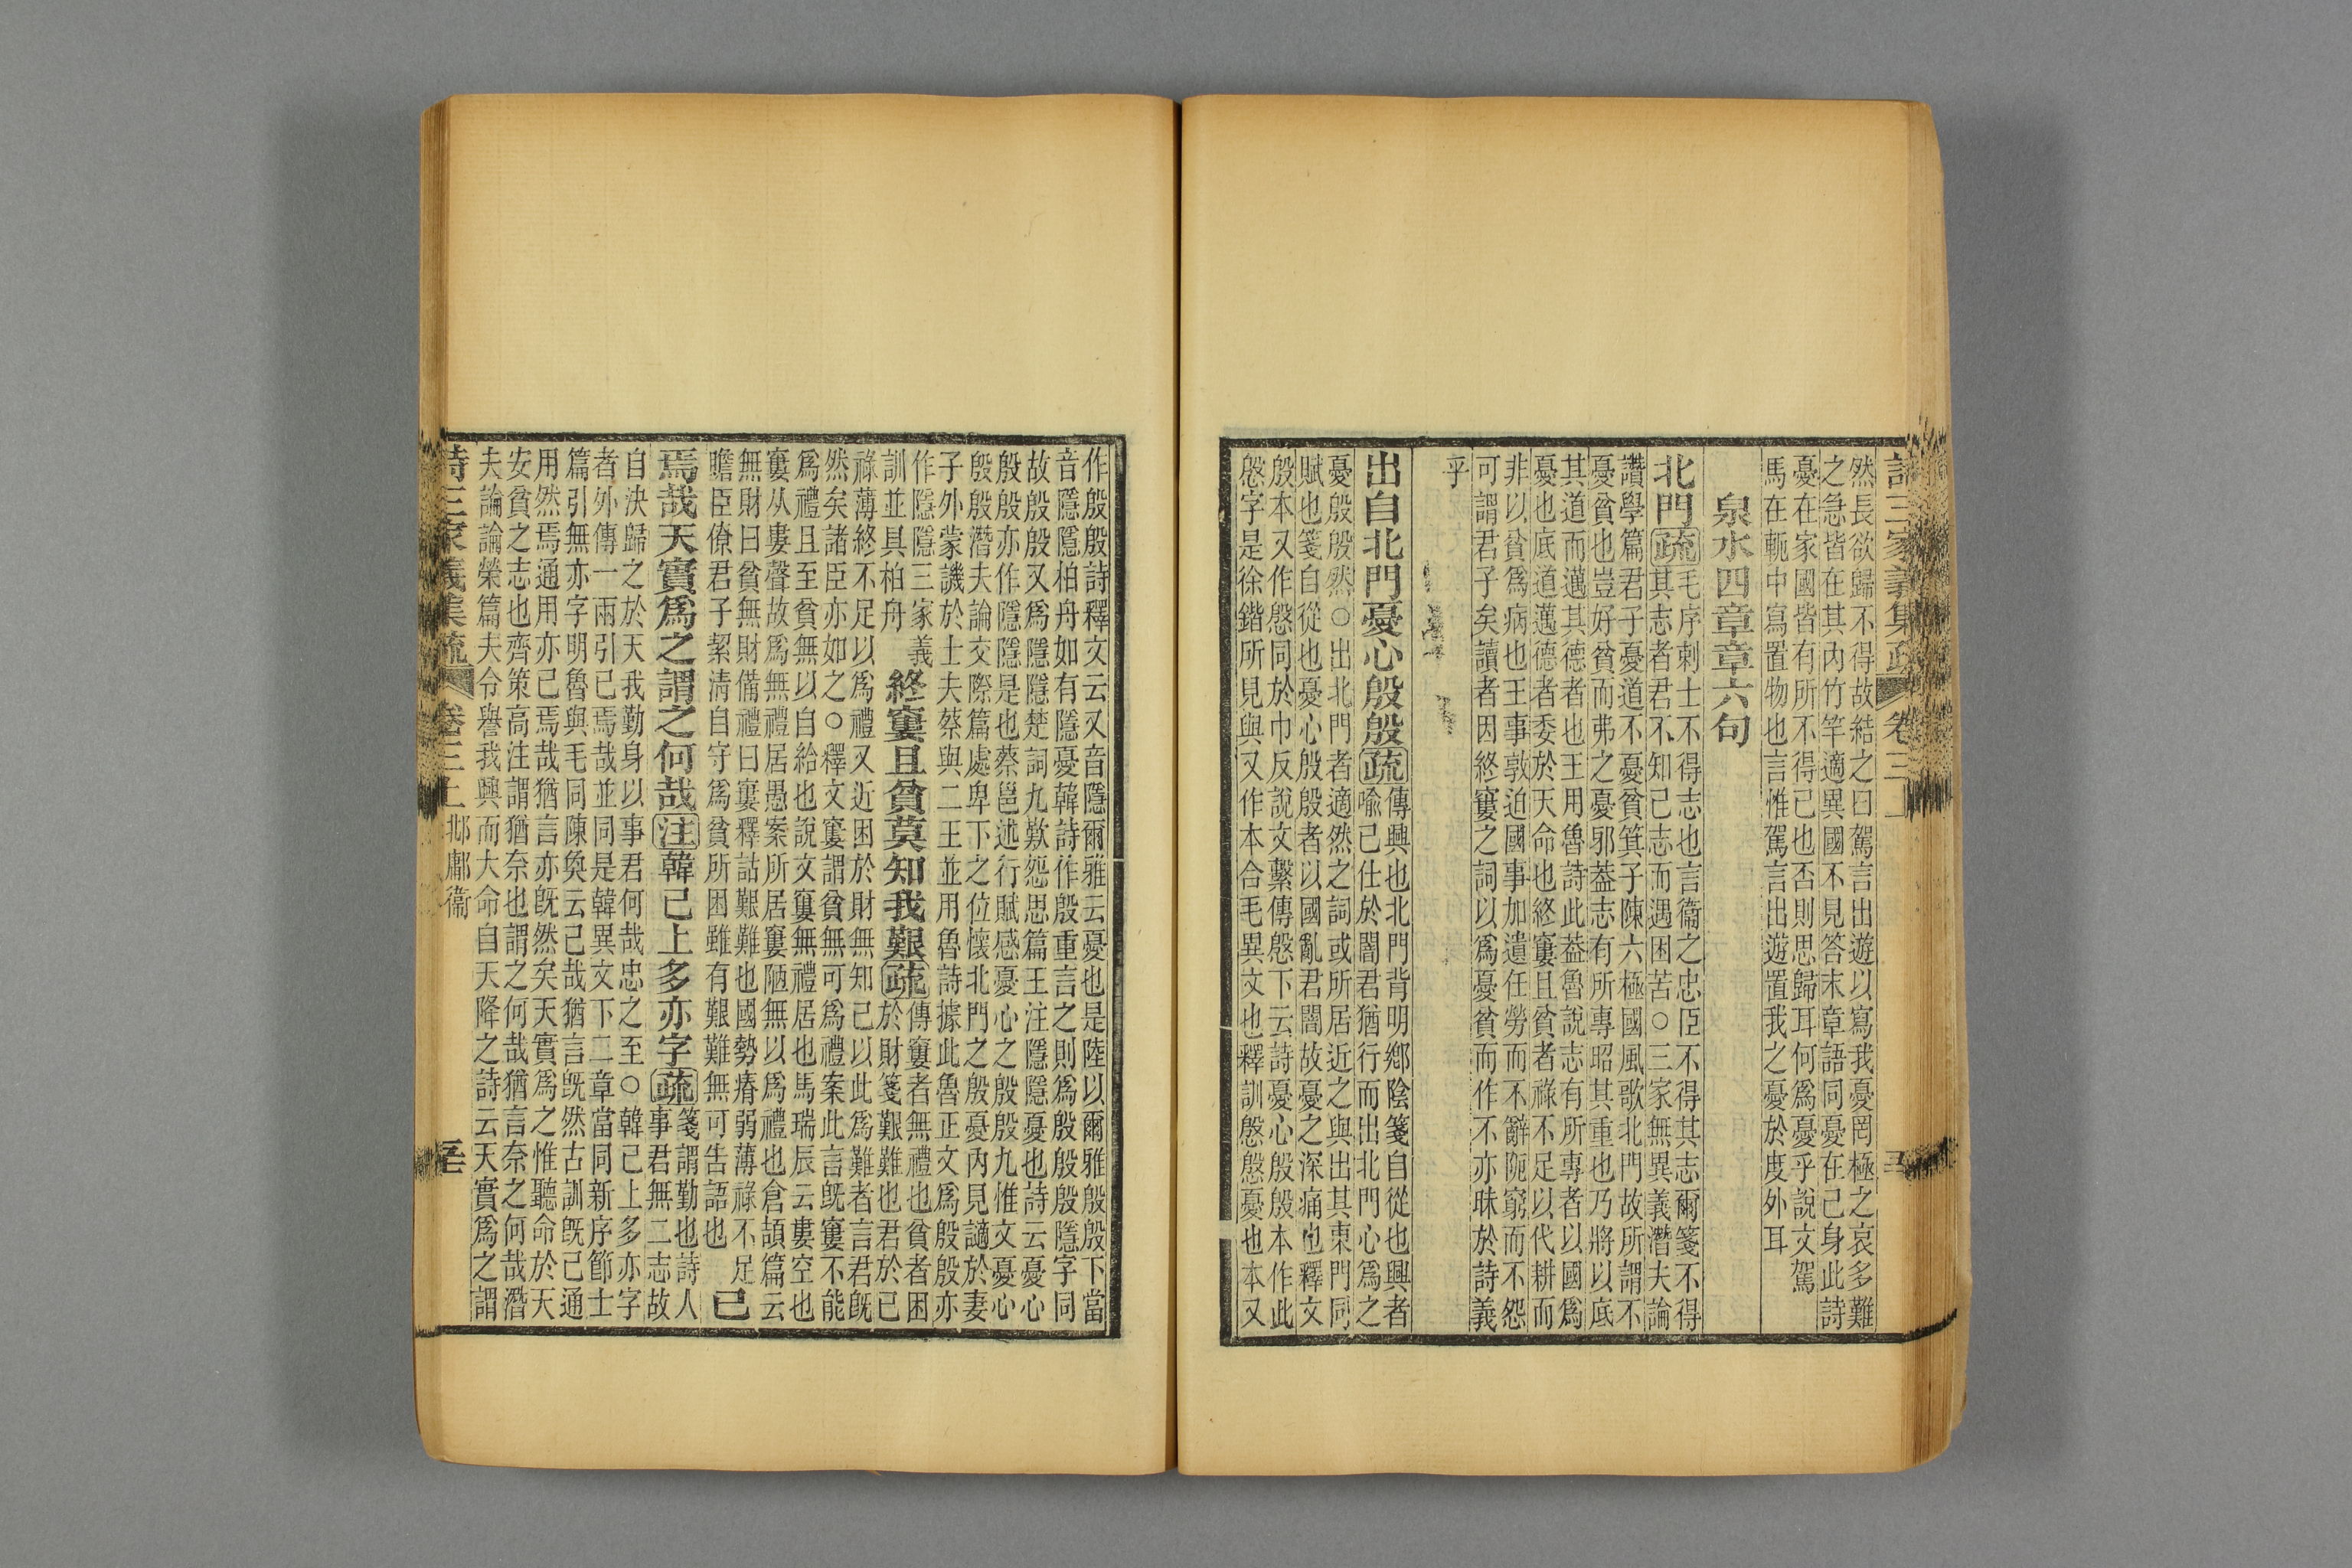 然長欲歸不得故結之曰駕言出遊以寫我憂罔極之哀多難
之急皆在其內竹竿適異國不見答末章語同憂在己身此詩
憂在家國皆有所不得已也否則思歸耳何爲憂乎說文駕
馬在軛中寫置物也言惟駕言出遊置我之憂於度外耳
泉水四章章六句
北門疏
毛序刺士不得志也言衞之忠臣不得其志爾箋不得
其志者君不知己志而遇困苦○三家無異義潛夫論
讚學篇君子憂道不憂貧箕子陳六極國風歌北門故所謂不
憂貧也豈好貧而弗之憂邪葢志有所專昭其重也乃將以底
其道而邁其德者也王用魯詩此葢魯說志有所專者以國爲
憂也底道邁德者委於天命也終窶且貧者祿不足以代耕而
非以貧爲病也王事敦迫國事加遺任勞而不辭阨窮而不怨
可謂君子矣讀者因終窶之詞以爲憂貧而作不亦昧於詩義
乎
出自北門憂心殷殷疏
傳興也北門背明鄉陰箋自從也興者
喻己仕於闇君猶行而出北門心爲之
憂殷殷然○出北門者適然之詞或所居近之與出其東門同
賦也箋自從也憂心殷殷者以國亂君闇故憂之深痛也釋文
殷本又作慇同於巾反說文繫傳慇下云詩憂心殷殷本作此
慇字是徐鍇所見與又作本合毛異文也釋訓慇慇憂也本又
作殷殷詩釋文云又音隱爾雅云憂也是陸以爾雅殷殷下當
音隱隱柏舟如有隱憂韓詩作殷重言之則爲殷殷殷隱字同
故殷殷又爲隱隱楚詞九歎怨思篇王注隱隱憂也詩云憂心
殷殷亦作隱隱是也蔡邕述行賦感憂心之殷殷九惟文憂心
殷殷潛夫論交際篇處卑下之位懷北門之殷憂內見謫於妻
子外蒙譏於士夫蔡與二王並用魯詩據此魯正文爲殷殷亦
作隱隱三家義
訓並具柏舟
終窶且貧莫知我艱疏
傳窶者無禮也貧者困
於財箋艱難也君於己
祿薄終不足以爲禮又近困於財無知己以此爲難者言君旣
然矣諸臣亦如之○釋文窶謂貧無可爲禮案此言旣窶不能
爲禮且至貧無以自給也說文窶無禮居也馬瑞辰云婁空也
窶从婁聲故爲無禮居愚案所居窶陋無以爲禮也倉頡篇云
無財曰貧無財備禮曰窶釋詁艱難也國勢瘠弱薄祿不足
贍臣僚君子絜淸自守爲貧所困雖有艱難無可告語也
已
焉哉天實爲之謂之何哉注韓已上多亦字疏
箋謂勤也詩人
事君無二志故
自決歸之於天我勤身以事君何哉忠之至○韓已上多亦字
者外傳一兩引已焉哉並同是韓異文下二章當同新序節士
篇引無亦字明魯與毛同陳奐云已哉猶言旣然古訓旣已通
用然焉通用亦已焉哉猶言亦旣然矣天實爲之惟聽命於天
安貧之志也齊策高注謂猶奈也謂之何哉猶言奈之何哉潛
夫論論榮篇夫令譽我興而大命自天降之詩云天實爲之謂
詩三家義集疏 卷三上 邶鄘衞